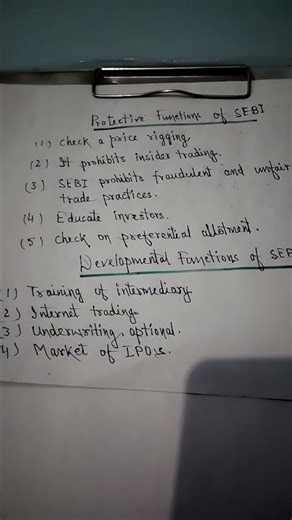 Protective Functions of SEBI
(1) Check a price rigging
(2) It prohibits insider trading.
(3) SEBI prohibits fraudulent and unfair
trade practices.
(4) Educate investors.
(5) Check on preferential allotment.
Developmental Functions of SEB
(1) Training of intermediary
2) Internet trading.
3) Underwriting optional.
4) Market of IPO's.